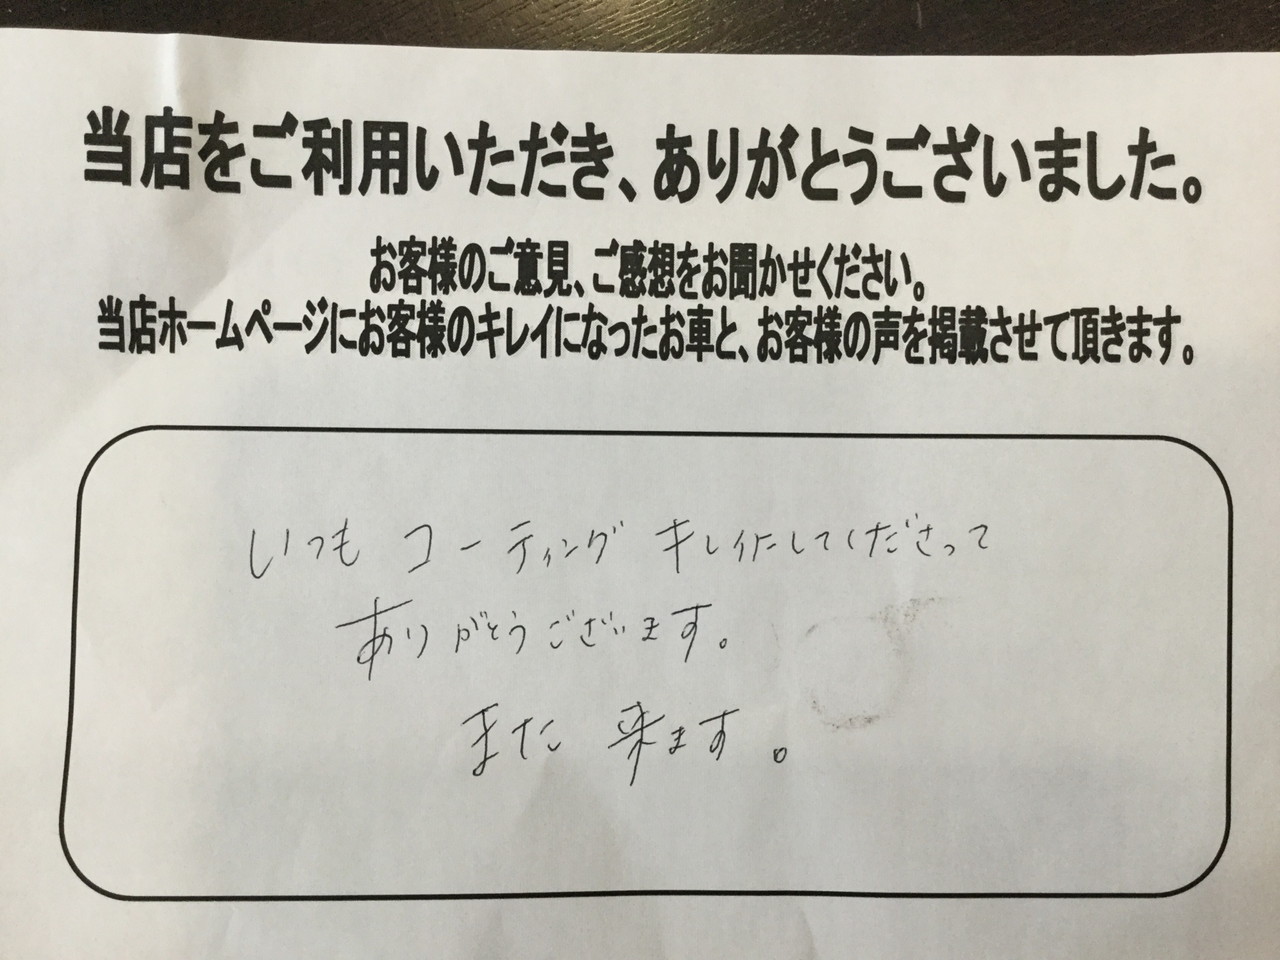 当店をご利用いただき、ありがとうございました。
お客様のご意見、ご感想をお聞かせください。
当店ホームページにお客様のキレイになったお車と、お客様の声を掲載させて頂きます。
いつも コーティング キレイにしてくださって
ありがとうございます。
また 来ます。